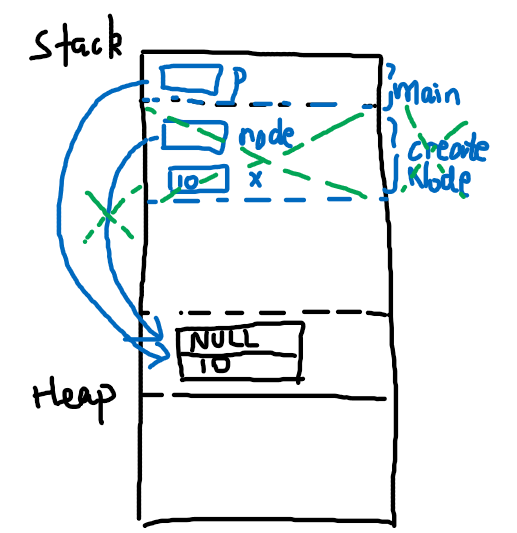 Stack
P
Main
node
10
x
create
Node
NULL
10
Heap